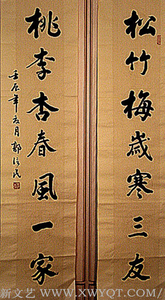 松竹梅歲寒三友
桃李杏春風一家
壬辰年
新文艺 WWW.XWYQT.COM